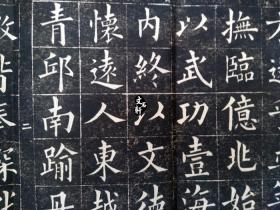 撫臨億兆始
以武功壹海
内終以文德
懷遠人東越
青邱南踰丹
二